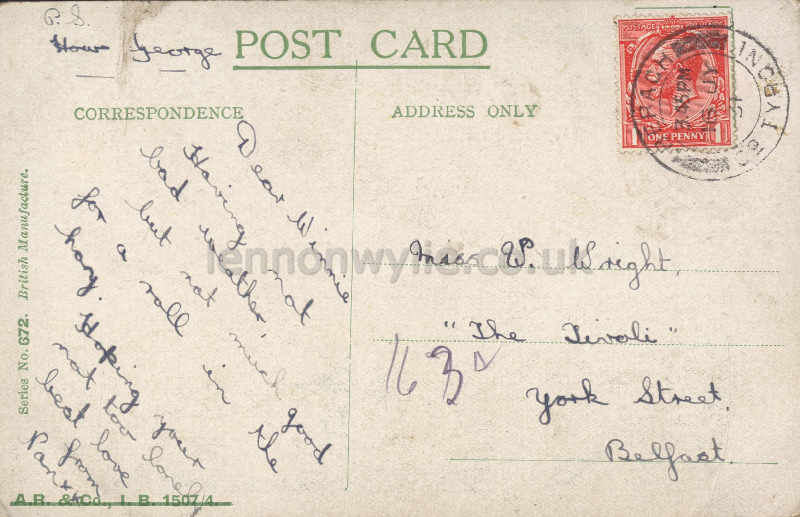 P.S.
How George
POST CARD
CORRESPONDENCE
ADDRESS ONLY
POSTAGE
ONE PENNY
8.45PM
16 JY
Dear Winnie
Having not
bad weather,
but not much good
for a roll in the
hay. Hoping your
not too lonely
best love
from
Pan xx
Miss W. Wright,
"The Tivoli"
York Street.
Belfast.
163
Series No. 672. British Manufacture.
A.R. & Co., I. B. 1507/4.
lennonwylie.co.uk